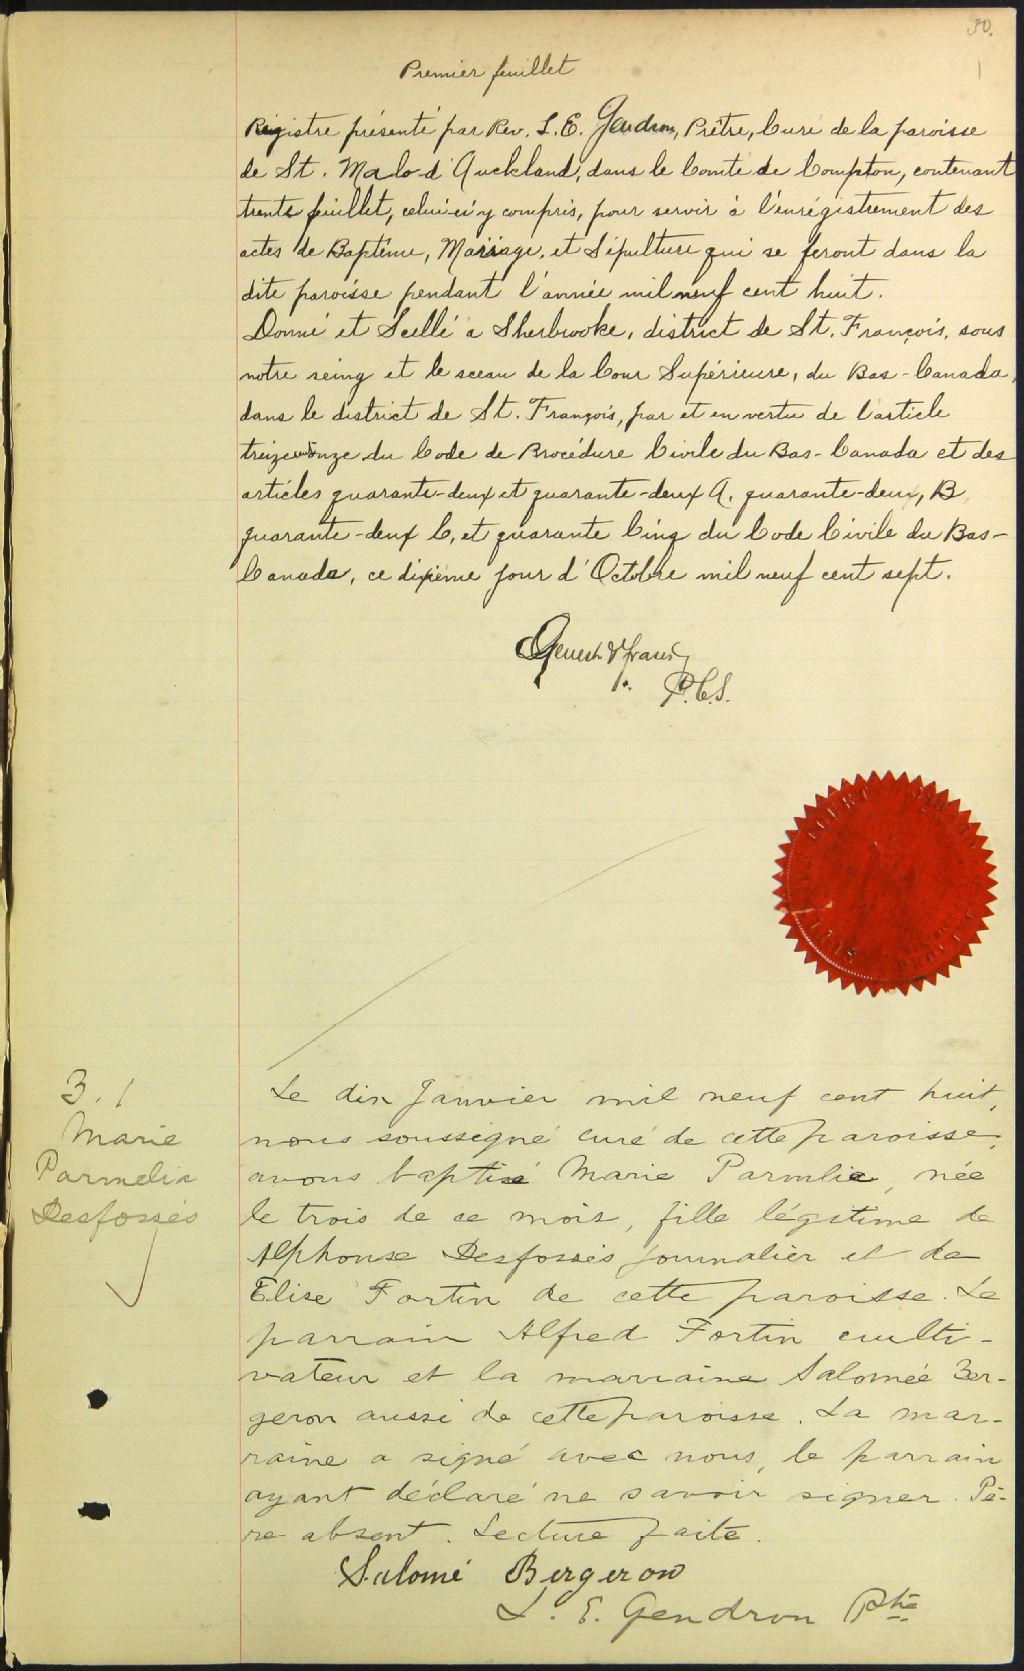 30.
1
Premier feuillet
Régistre présenté par Rev. L. E. Gendron, Prêtre, Curé de la paroisse
de St. Malo d'Auckland, dans le Comté de Compton, contenant
trente feuillet, celui-ci y compris, pour servir à l'enrégistrement des
actes de Baptême, Mariage, et Sépulture qui se feront dans la
dite paroisse pendant l'année mil neuf cent huit.
Donné et Scellé a Sherbrooke, district de St. François, sous
notre seing et le sceau de la Cour Supérieure, du Bas-Canada,
dans le district de St. François, par et en vertu de l'article
treize cent onze du Code de Procédure Civile du Bas-Canada et des
articles quarante-deux et quarante-deux A, quarante-deux, B
quarante-deux C, et quarante Cinq du Code Civile du Bas-
Canada, ce dixième jour d'Octobre mil neuf cent sept.
P.C.S.
3. 1
Marie
Parmelia
Desfossés
Le dix Janvier mil neuf cent huit,
nous soussigné curé de cette paroisse,
avons baptisé Marie Parmlie, née
le trois de ce mois, fille légitime de
Alphonse Desfossés journalier et de
Elise Fortin de cette paroisse. Le
parrain Alfred Fortin culti-
vateur et la marraine Salomée Ber-
geron aussi de cette paroisse. La mar-
raine a signé avec nous, le parrain
ayant déclaré ne savoir signer. Pè-
re absent. Lecture faite.
Salomé Bergeron
L. E. Gendron Ptre